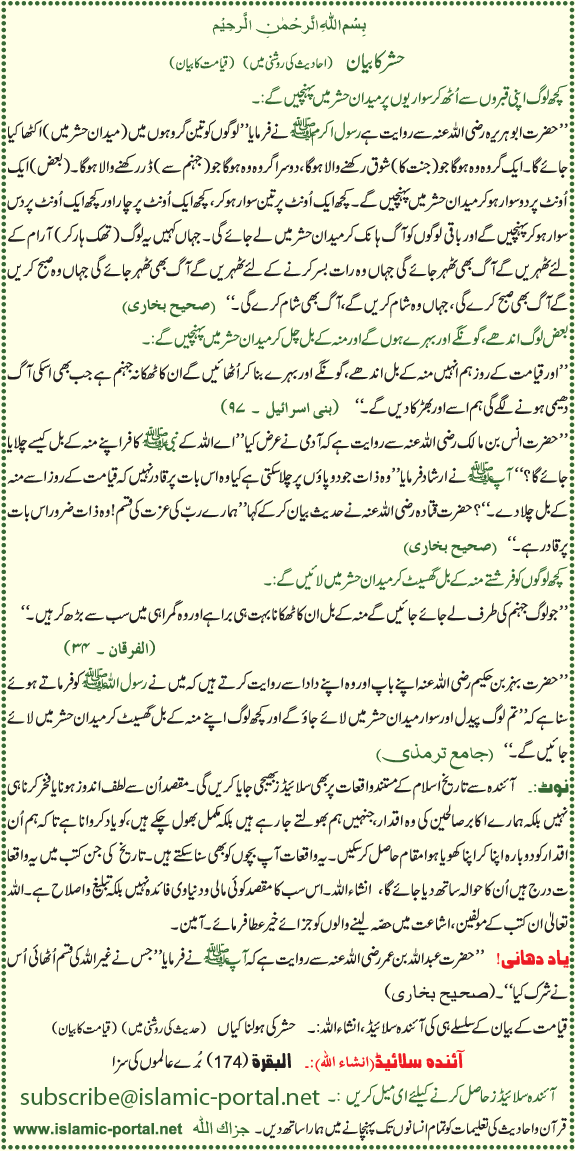 بِسْمِ اللهِ الرَّحْمٰنِ الرَّحِيْم
حشر کا بیان (احادیث کی روشنی میں) (قیامت کا بیان)
کچھ لوگ اپنی قبروں سے اُٹھ کر سواریوں پر میدان حشر میں پہنچیں گے:۔
’’حضرت ابو ہریرہ رضی اللہ عنہ سے روایت ہے رسول اکرم ﷺ نے فرمایا ’’لوگوں کو تین گروہوں میں (میدان حشر میں) اکٹھا کیا
جائے گا۔ ایک گروہ وہ ہوگا جو (جنت کا) شوق رکھنے والا ہوگا، دوسرا گروہ وہ ہوگا جو (جہنم سے) ڈر رکھنے والا ہوگا۔ (بعض) ایک
اُونٹ پر دو سوار ہو کر میدان حشر میں پہنچیں گے۔ کچھ ایک اُونٹ پر تین سوار ہو کر، کچھ ایک اُونٹ پر چار اور کچھ ایک اُونٹ پر دس
سوار ہو کر پہنچیں گے اور باقی لوگوں کو آگ ہانک کر میدان حشر میں لے جائے گی۔ جہاں کہیں یہ لوگ (تھک ہار کر) آرام کے
لئے ٹھہریں گے آگ بھی ٹھہر جائے گی جہاں وہ رات بسر کرنے کے لئے ٹھہریں گے آگ بھی ٹھہر جائے گی جہاں وہ صبح کریں
گے آگ بھی صبح کرے گی، جہاں وہ شام کریں گے، آگ بھی شام کرے گی۔‘‘ (صحیح بخاری)
بعض لوگ اندھے، گونگے اور بہرے ہوں گے اور منہ کے بل چل کر میدان حشر میں پہنچیں گے:۔
’’اور قیامت کے روز ہم انہیں منہ کے بل اندھے، گونگے اور بہرے بنا کر اُٹھائیں گے ان کا ٹھکانہ جہنم ہے جب بھی اسکی آگ
دھیمی ہونے لگے گی ہم اسے اور بھڑکا دیں گے۔‘‘ (بنی اسرائیل ۔ ۹۷)
’’حضرت انس بن مالک رضی اللہ عنہ سے روایت ہے کہ آدمی نے عرض کیا ’’اے اللہ کے نبی ﷺ کافر اپنے منہ کے بل کیسے چلایا
جائے گا؟‘‘ آپ ﷺ نے ارشاد فرمایا ’’وہ ذات جو دو پاؤں پر چلا سکتی ہے کیا وہ اس بات پر قادر نہیں کہ قیامت کے روز اسے منہ
کے بل چلا دے۔‘‘؟ حضرت قتادہ رضی اللہ عنہ نے حدیث بیان کر کے کہا ’’ہمارے ربّ کی عزت کی قسم! وہ ذات ضرور اس بات
پر قادر ہے۔‘‘ (صحیح بخاری)
کچھ لوگوں کو فرشتے منہ کے بل گھسیٹ کر میدان حشر میں لائیں گے:۔
’’جو لوگ جہنم کی طرف لے جائے جائیں گے منہ کے بل ان کا ٹھکانا بہت ہی برا ہے اور وہ گمراہی میں سب سے بڑھ کر ہیں۔‘‘
(الفرقان ۔ ۳۴)
’’حضرت بہز بن حکیم رضی اللہ عنہ اپنے باپ اور وہ اپنے دادا سے روایت کرتے ہیں کہ میں نے رسول اللہ ﷺ کو فرماتے ہوئے
سنا ہے کہ ’’تم لوگ پیدل اور سوار میدان حشر میں لائے جاؤ گے اور کچھ لوگ اپنے منہ کے بل گھسیٹ کر میدان حشر میں لائے
جائیں گے۔‘‘ (جامع ترمذی)
نوٹ:۔ آئندہ سے تاریخ اسلام کے مستند واقعات پر بھی سلائیڈز بھیجی جایا کریں گی۔ مقصد اُن سے لطف اندوز ہونا یا فخر کرنا ہی
نہیں بلکہ ہمارے اکابر صالحین کی وہ اقدار، جنہیں ہم بھولتے جا رہے ہیں بلکہ مکمل بھول چکے ہیں، کو یاد کروانا ہے تاکہ ہم اُن
اقدار کو دوبارہ اپنا کر اپنا کھویا ہوا مقام حاصل کر سکیں۔ یہ واقعات آپ بچوں کو بھی سنا سکتے ہیں۔ تاریخ کی جن کتب میں یہ واقعا
ت درج ہیں اُن کا حوالہ ساتھ دیا جائے گا، انشاء اللہ۔ اس سب کا مقصد کوئی مالی و دنیاوی فائدہ نہیں بلکہ تبلیغ و اصلاح ہے۔ اللہ
تعالیٰ ان کتب کے مؤلفین، اشاعت میں حصّہ لینے والوں کو جزائے خیر عطا فرمائے۔ آمین۔
یاد دھانی! ’’حضرت عبداللہ بن عمر رضی اللہ عنہ سے روایت ہے کہ آپ ﷺ نے فرمایا ’’جس نے غیر اللہ کی قسم اُٹھائی اُس
نے شرک کیا‘‘۔ (صحیح بخاری)
قیامت کے بیان کے سلسلے ہی کی آئندہ سلائیڈ، انشاء اللہ:۔ حشر کی ہولناکیاں (حدیث کی روشنی میں) (قیامت کا بیان)
آئندہ سلائیڈ (انشاء اللہ):۔ البقرة (174) بُرے عالموں کی سزا
آئندہ سلائیڈز حاصل کرنے کیلئے ای میل کریں :۔ subscribe@islamic-portal.net
قرآن و احادیث کی تعلیمات کو تمام انسانوں تک پہنچانے میں ہمارا ساتھ دیں۔ جزاك الله www.islamic-portal.net